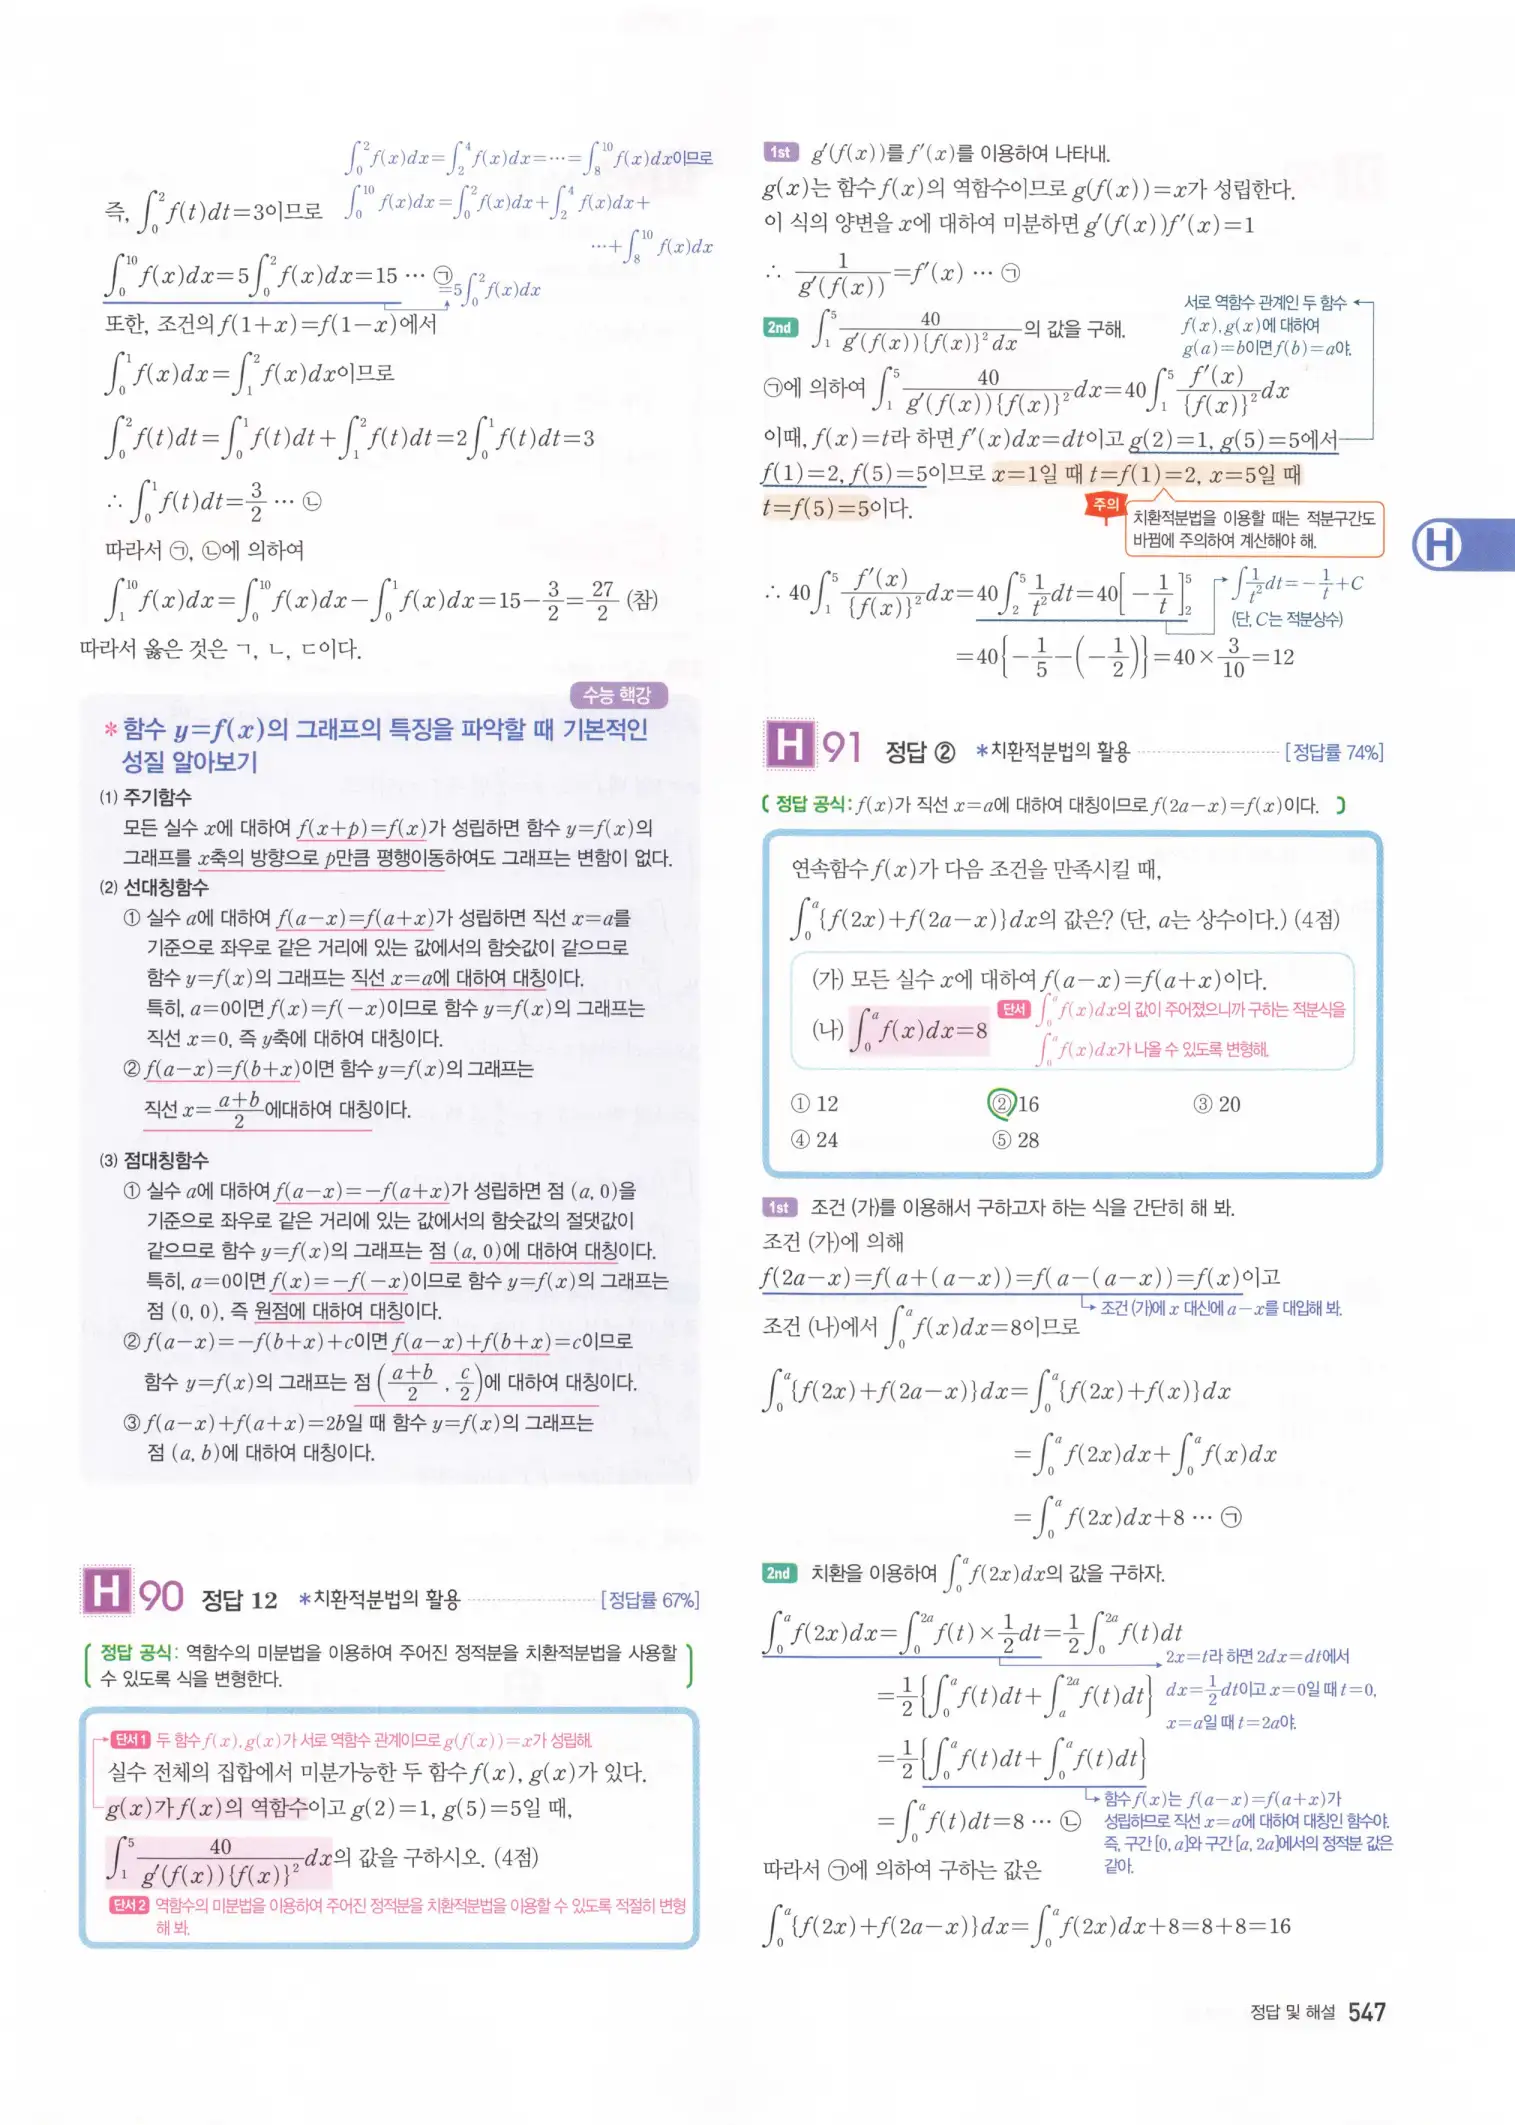 ∫₀²f(x)dx=∫₂⁴f(x)dx=⋯=∫₈¹⁰f(x)dx이므로
즉, ∫₀²f(t)dt=3이므로
∫₀¹⁰f(x)dx=∫₀²f(x)dx+∫₂⁴f(x)dx+
⋯+∫₈¹⁰f(x)dx
∫₀¹⁰f(x)dx=5∫₀²f(x)dx=15 ⋯ ㉠
=5∫₀²f(x)dx
또한, 조건의 f(1+x)=f(1-x)에서
∫₀¹f(x)dx=∫₁²f(x)dx이므로
∫₀²f(t)dt=∫₀¹f(t)dt+∫₁²f(t)dt=2∫₀¹f(t)dt=3
∴ ∫₀¹f(t)dt=3/2 ⋯ ㉡
따라서 ㉠, ㉡에 의하여
∫₁¹⁰f(x)dx=∫₀¹⁰f(x)dx-∫₀¹f(x)dx=15-3/2=27/2 (참)
따라서 옳은 것은 ㄱ, ㄴ, ㄷ이다.
수능 핵강
*함수 y=f(x)의 그래프의 특징을 파악할 때 기본적인
성질 알아보기
(1) 주기함수
모든 실수 x에 대하여 f(x+p)=f(x)가 성립하면 함수 y=f(x)의
그래프를 x축의 방향으로 p만큼 평행이동하여도 그래프는 변함이 없다.
(2) 선대칭함수
① 실수 a에 대하여 f(a-x)=f(a+x)가 성립하면 직선 x=a를
기준으로 좌우로 같은 거리에 있는 값에서의 함숫값이 같으므로
함수 y=f(x)의 그래프는 직선 x=a에 대하여 대칭이다.
특히, a=0이면 f(x)=f(-x)이므로 함수 y=f(x)의 그래프는
직선 x=0, 즉 y축에 대하여 대칭이다.
② f(a-x)=f(b+x)이면 함수 y=f(x)의 그래프는
직선 x=(a+b)/2에대하여 대칭이다.
(3) 점대칭함수
① 실수 a에 대하여 f(a-x)=-f(a+x)가 성립하면 점 (a, 0)을
기준으로 좌우로 같은 거리에 있는 값에서의 함숫값의 절댓값이
같으므로 함수 y=f(x)의 그래프는 점 (a, 0)에 대하여 대칭이다.
특히, a=0이면 f(x)=-f(-x)이므로 함수 y=f(x)의 그래프는
점 (0, 0), 즉 원점에 대하여 대칭이다.
② f(a-x)=-f(b+x)+c이면 f(a-x)+f(b+x)=c이므로
함수 y=f(x)의 그래프는 점 ((a+b)/2, c/2)에 대하여 대칭이다.
③ f(a-x)+f(a+x)=2b일 때 함수 y=f(x)의 그래프는
점 (a, b)에 대하여 대칭이다.
H 90 정답 12 *치환적분법의 활용 [정답률 67%]
정답 공식: 역함수의 미분법을 이용하여 주어진 정적분을 치환적분법을 사용할
수 있도록 식을 변형한다.
단서1 두 함수 f(x), g(x)가 서로 역함수 관계이므로 g(f(x))=x가 성립해.
실수 전체의 집합에서 미분가능한 두 함수 f(x), g(x)가 있다.
g(x)가 f(x)의 역함수이고 g(2)=1, g(5)=5일 때,
∫₁⁵ 40/(g′(f(x)){f(x)}²) dx의 값을 구하시오. (4점)
단서2 역함수의 미분법을 이용하여 주어진 정적분을 치환적분법을 이용할 수 있도록 적절히 변형
해 봐.
1st g′(f(x))를 f′(x)를 이용하여 나타내.
g(x)는 함수 f(x)의 역함수이므로 g(f(x))=x가 성립한다.
이 식의 양변을 x에 대하여 미분하면 g′(f(x))f′(x)=1
∴ 1/g′(f(x))=f′(x) ⋯ ㉠
2nd ∫₁⁵ 40/(g′(f(x)){f(x)}² dx)의 값을 구해.
서로 역함수 관계인 두 함수
f(x), g(x)에 대하여
g(a)=b이면 f(b)=a야.
㉠에 의하여 ∫₁⁵ 40/(g′(f(x)){f(x)}²) dx=40∫₁⁵ f′(x)/{f(x)}² dx
이때, f(x)=t라 하면 f′(x)dx=dt이고 g(2)=1, g(5)=5에서
f(1)=2, f(5)=5이므로 x=1일 때 t=f(1)=2, x=5일 때
t=f(5)=5이다.
주의 치환적분법을 이용할 때는 적분구간도
바뀜에 주의하여 계산해야 해.
∴ 40∫₁⁵ f′(x)/{f(x)}² dx=40∫₂⁵ 1/t² dt=40[-1/t]₂⁵
∫1/t² dt=-1/t+C
(단, C는 적분상수)
=40{-1/5-(-1/2)}=40×3/10=12
H
H 91 정답 ② *치환적분법의 활용 [정답률 74%]
정답 공식: f(x)가 직선 x=a에 대하여 대칭이므로 f(2a-x)=f(x)이다.
연속함수 f(x)가 다음 조건을 만족시킬 때,
∫₀ᵃ{f(2x)+f(2a-x)}dx의 값은? (단, a는 상수이다.) (4점)
(가) 모든 실수 x에 대하여 f(a-x)=f(a+x)이다.
(나) ∫₀ᵃf(x)dx=8
단서 ∫₀ᵃf(x)dx의 값이 주어졌으니까 구하는 적분식을
∫₀ᵃf(x)dx가 나올 수 있도록 변형해.
① 12 ② 16 ③ 20
④ 24 ⑤ 28
1st 조건 (가)를 이용해서 구하고자 하는 식을 간단히 해 봐.
조건 (가)에 의해
f(2a-x)=f(a+(a-x))=f(a-(a-x))=f(x)이고
조건 (가)에 x 대신에 a-x를 대입해 봐.
조건 (나)에서 ∫₀ᵃf(x)dx=8이므로
∫₀ᵃ{f(2x)+f(2a-x)}dx=∫₀ᵃ{f(2x)+f(x)}dx
=∫₀ᵃf(2x)dx+∫₀ᵃf(x)dx
=∫₀ᵃf(2x)dx+8 ⋯ ㉠
2nd 치환을 이용하여 ∫₀ᵃf(2x)dx의 값을 구하자.
∫₀ᵃf(2x)dx=∫₀²ᵃf(t)×1/2 dt=1/2∫₀²ᵃf(t)dt
2x=t라 하면 2dx=dt에서
dx=1/2 dt이고 x=0일 때 t=0,
x=a일 때 t=2a야.
=1/2{∫₀ᵃf(t)dt+∫ₐ²ᵃf(t)dt}
=1/2{∫₀ᵃf(t)dt+∫₀ᵃf(t)dt}
=∫₀ᵃf(t)dt=8 ⋯ ㉡
함수 f(x)는 f(a-x)=f(a+x)가
성립하므로 직선 x=a에 대하여 대칭인 함수야.
즉, 구간 [0, a]와 구간 [a, 2a]에서의 정적분 값은
같아.
따라서 ㉠에 의하여 구하는 값은
∫₀ᵃ{f(2x)+f(2a-x)}dx=∫₀ᵃf(2x)dx+8=8+8=16
정답 및 해설 547